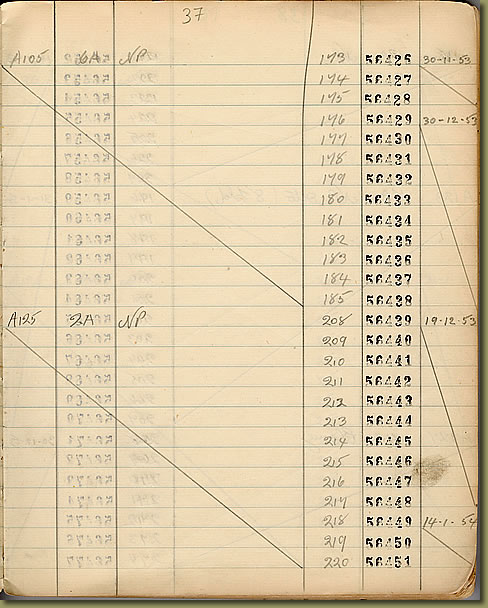 37
A105 6A NP 173 56426 30-11-53
174 56427
175 56428
176 56429 30-12-53
177 56430
178 56431
179 56432
180 56433
181 56434
182 56435
183 56436
184 56437
185 56438
A125 2A NP 208 56439 19-12-53
209 56440
210 56441
211 56442
212 56443
213 56444
214 56445
215 56446
216 56447
217 56448
218 56449 14-1-54
219 56450
220 56451